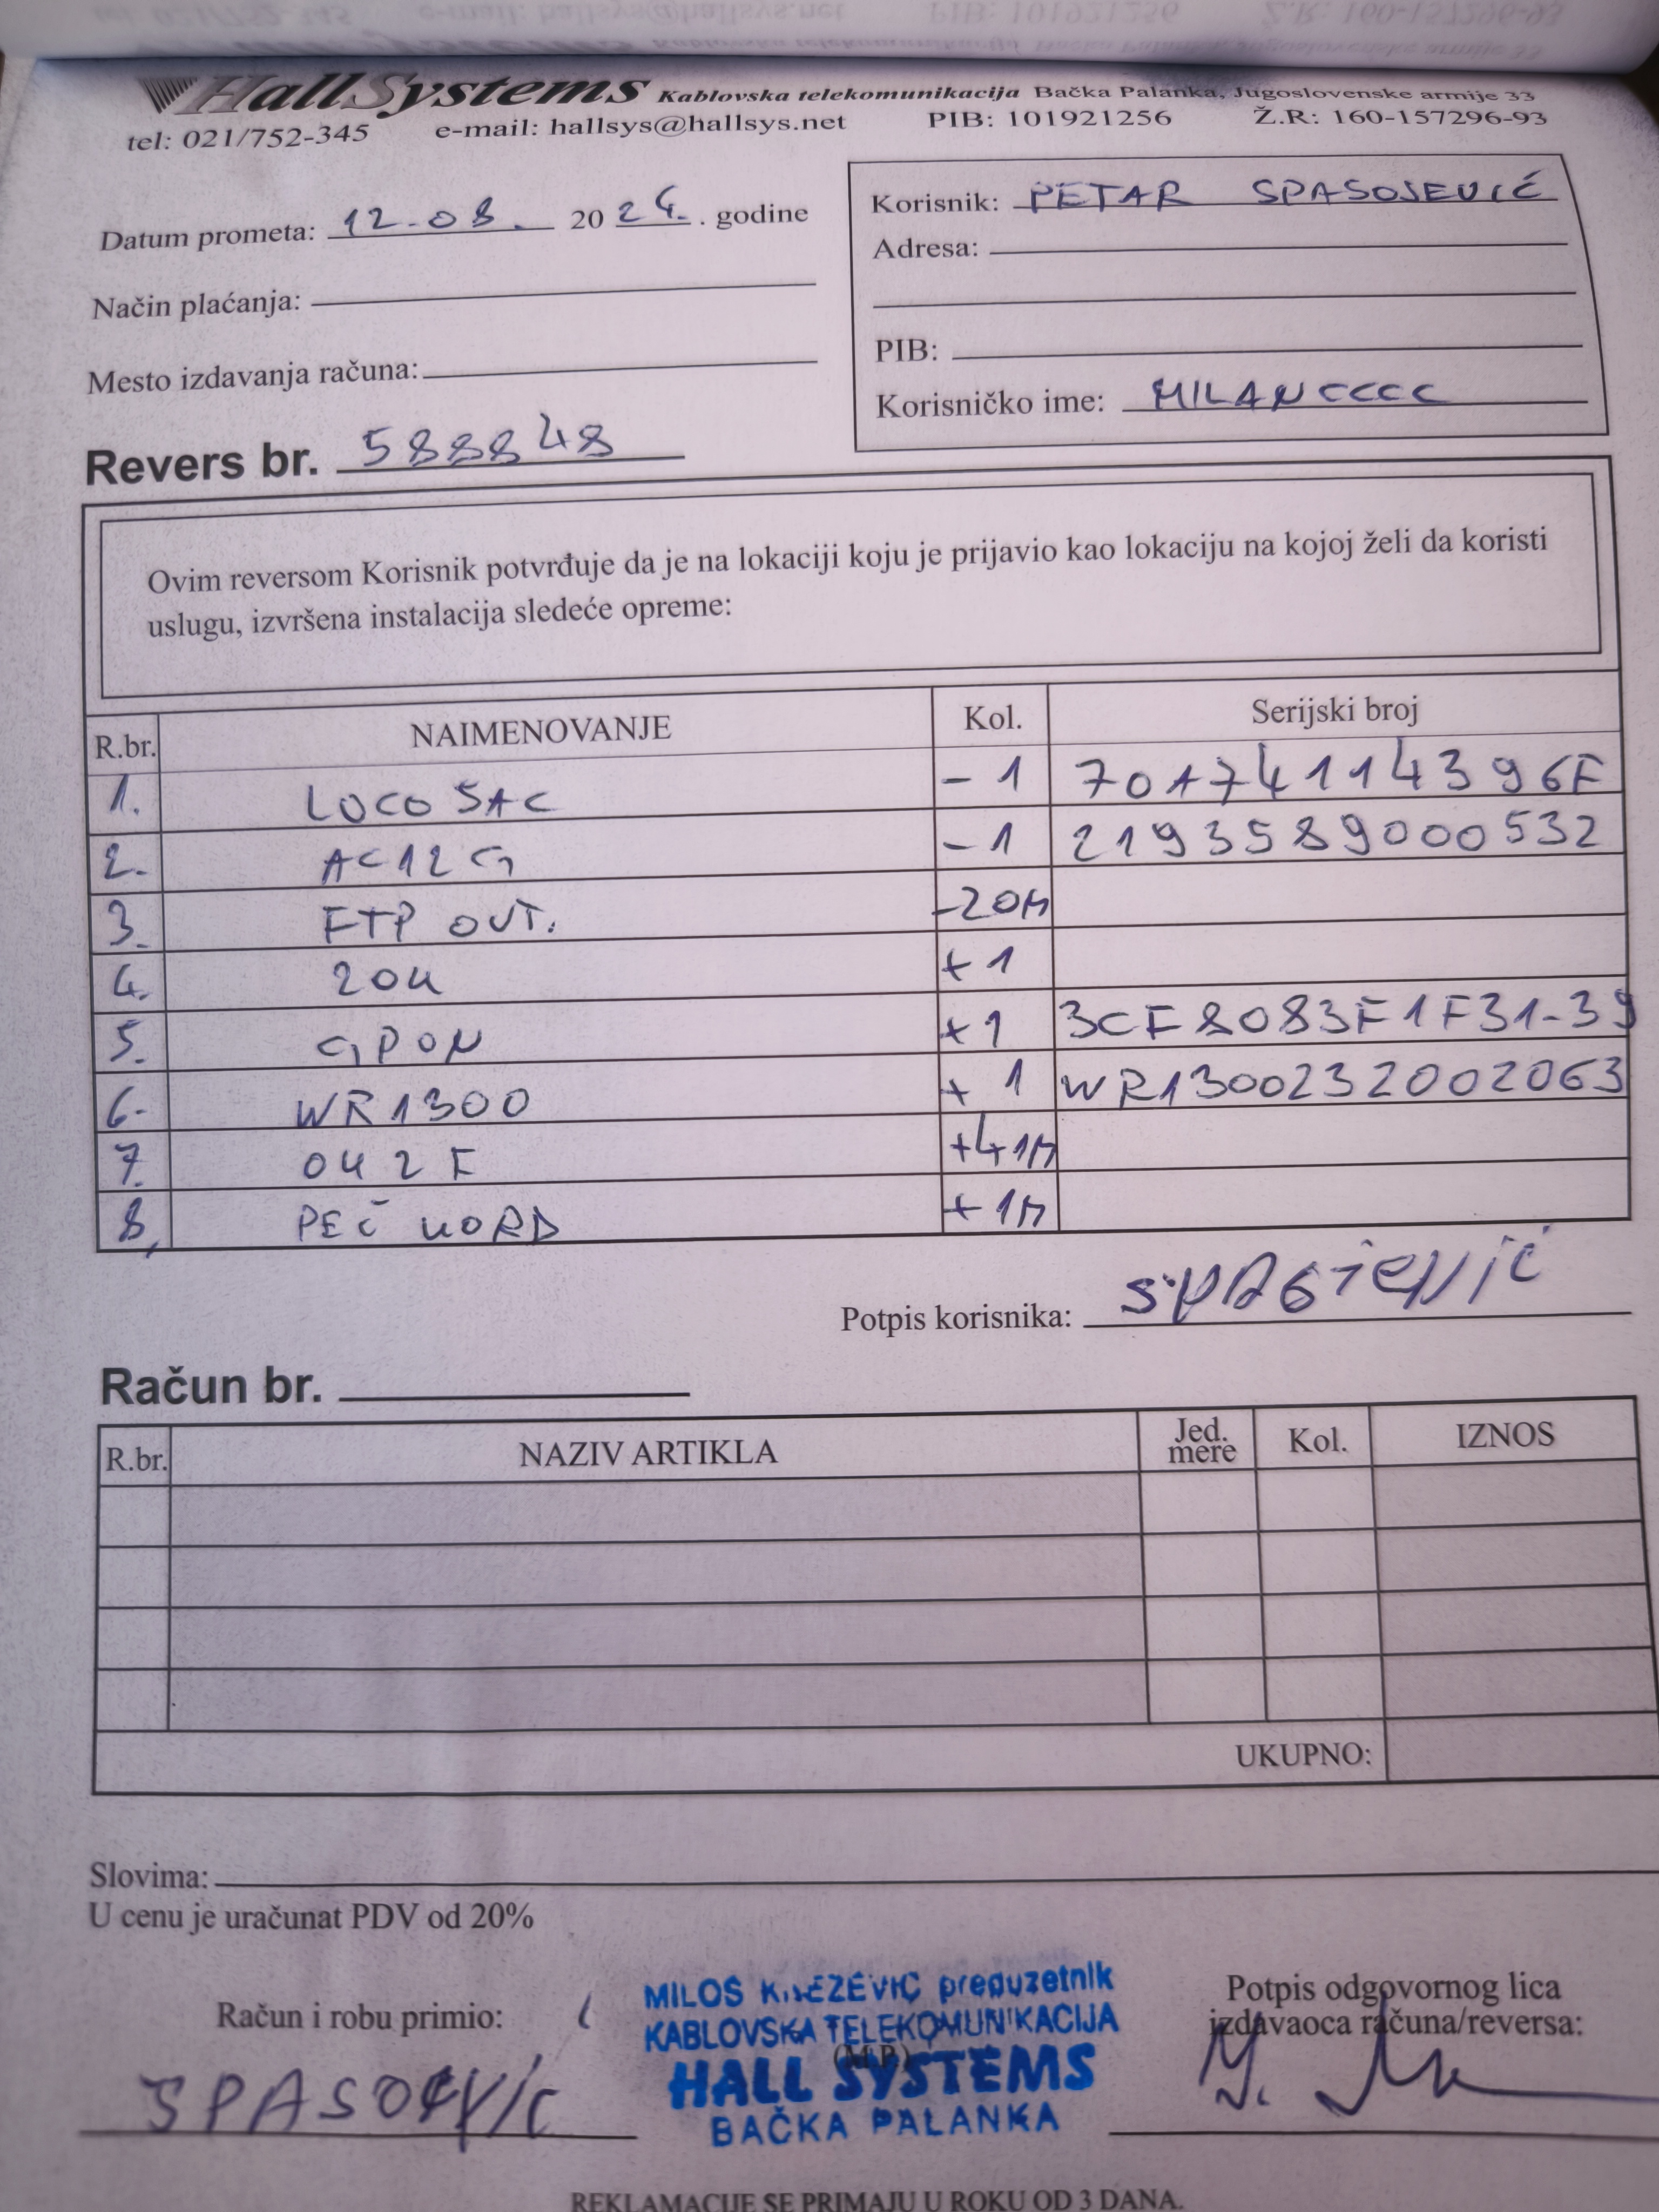 HallSystems Kablovska telekomunikacija Bačka Palanka, Jugoslovenske armije 33
tel: 021/752-345 e-mail: hallsys@hallsys.net PIB: 101921256 Ž.R: 160-157296-93
Datum prometa: 12.08. 2024. godine
Način plaćanja:
Mesto izdavanja računa:
Korisnik: PETAR SPASOJEVIĆ
Adresa:
PIB:
Korisničko ime: MILANCCCC
Revers br. 588848
Ovim reversom Korisnik potvrđuje da je na lokaciji koju je prijavio kao lokaciju na kojoj želi da koristi
uslugu, izvršena instalacija sledeće opreme:
R.br. NAIMENOVANJE Kol. Serijski broj
1. LOCO 5AC -1 70174114396F
2. AC12G -1 2193589000532
3. FTP OUT. -20M
4. ZOK +1
5. GPON +1 3CF8083F1F31-39
6. WR1300 +1 WR1300232002063
7. OK 2F +41M
8. PEČ KORD +1M
Potpis korisnika:
Račun br.
R.br. NAZIV ARTIKLA Jed. mere Kol. IZNOS
UKUPNO:
Slovima:
U cenu je uračunat PDV od 20%
Račun i robu primio:
MILOŠ KNEŽEVIĆ preduzetnik
KABLOVSKA TELEKOMUNIKACIJA
(M.P.)
HALL SYSTEMS
BAČKA PALANKA
Potpis odgovornog lica
izdavaoca računa/reversa:
REKLAMACIJE SE PRIMAJU U ROKU OD 3 DANA.